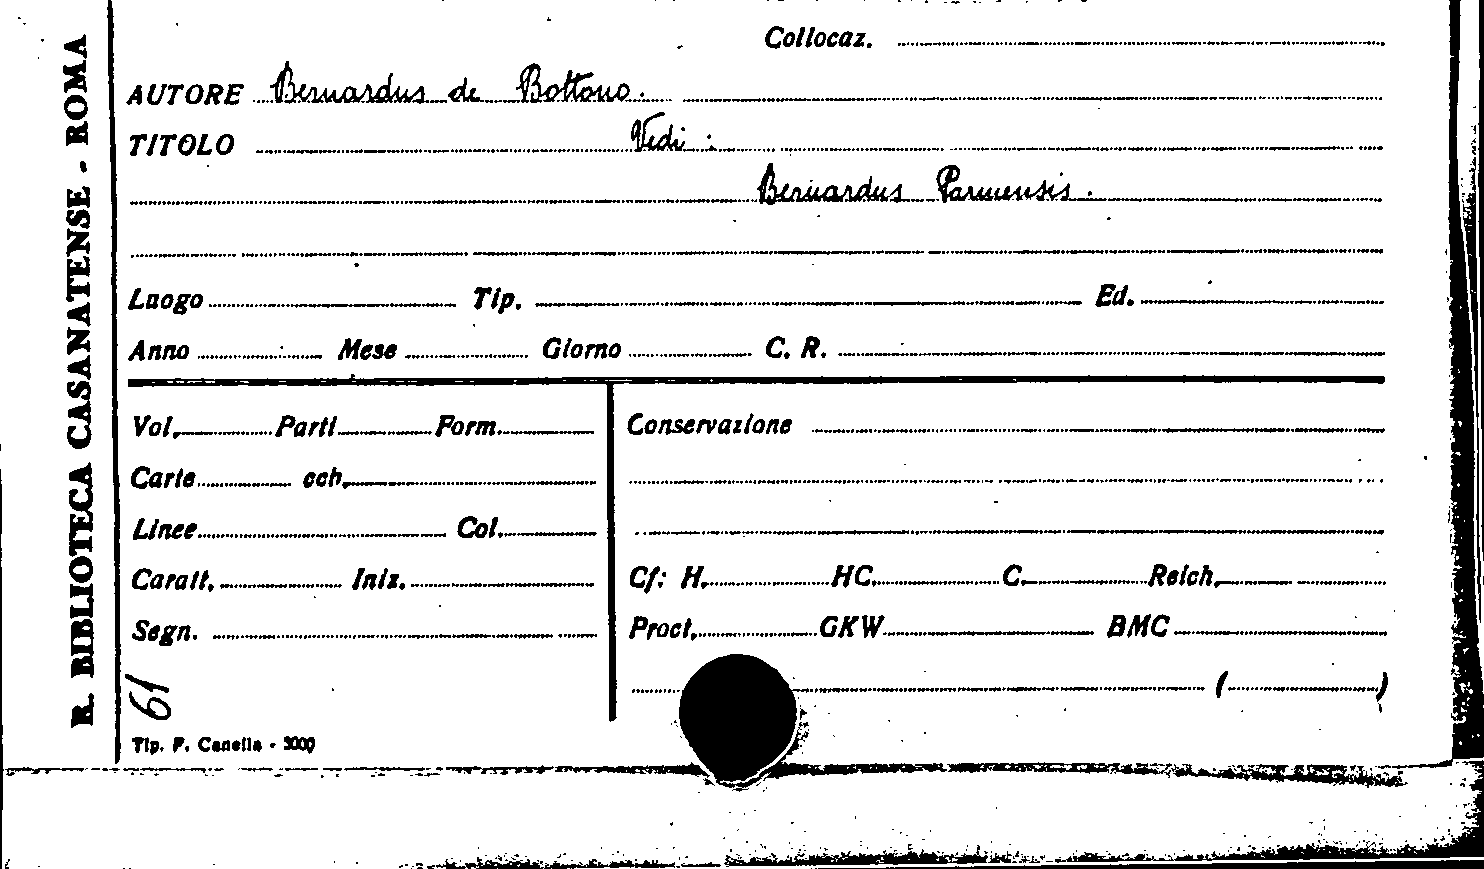 Collocaz.
AUTORE Bernardus de Bottono.
TITOLO Vedi :
Bernardus Parmensis.
Luogo Tip. Ed.
Anno Mese Giorno C. R.
Vol. Parti Form. Conservazione
Carte cch.
Linee Col.
Caratt. Iniz. Cf: H. HC. C. Reich.
Segn. Proct. GKW BMC
( )
61
Tip. F. Canella - 3000
R. BIBLIOTECA CASANATENSE - ROMA